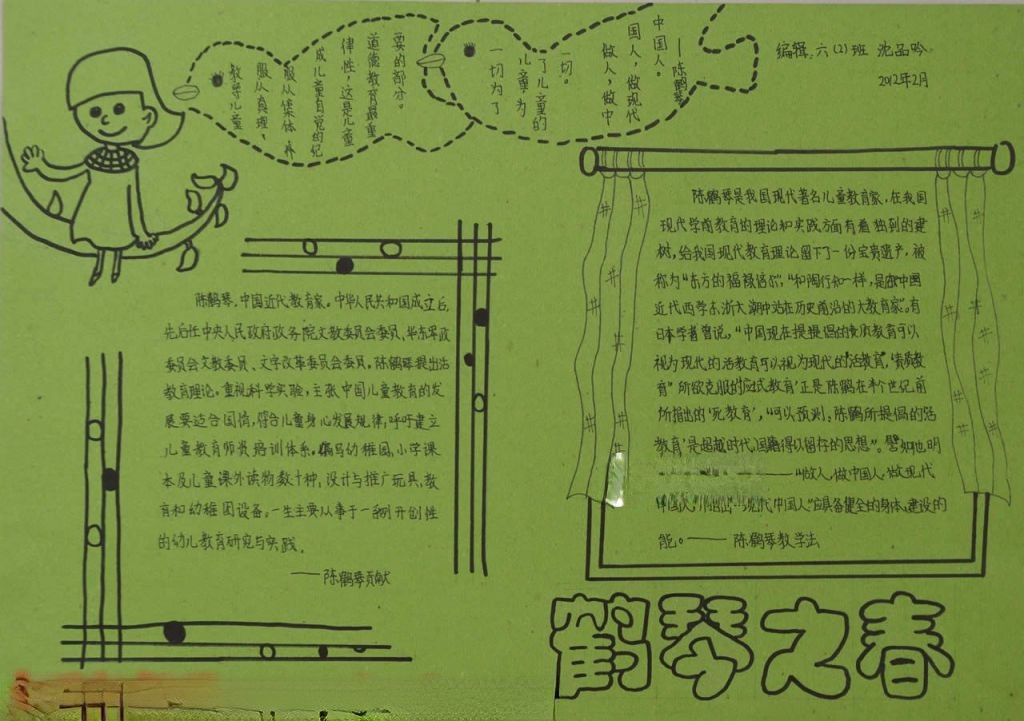 教导儿童
服从真理，
服从集体，养
成儿童自觉的纪
律性，这是儿童
道德教育最重
要的部分。
一切为了
儿童，为
了儿童的
一切。
做人，做中
国人，做现代
中国人。
——陈鹤琴
编辑：六（2）班 沈品吟
2012年2月
陈鹤琴，中国近代教育家。中华人民共和国成立后，
先后任中央人民政府政务院文教委员会委员，华东军政
委员会文教委员、文字改革委员会委员。陈鹤琴提出活
教育理论。重视科学实验，主张中国儿童教育的发
展要适合国情，符合儿童身心发展规律；呼吁建立
儿童教育师资培训体系。编写幼稚园，小学课
本及儿童课外读物数十种，设计与推广玩具、教
育和幼稚园设备。一生主要从事于一系列开创性
的幼儿教育研究与实践。
——陈鹤琴贡献
陈鹤琴是我国现代著名儿童教育家，在我国
现代学前教育的理论和实践方面有着独到的建
树，给我国现代教育理论留下了一份宝贵遗产，被
称为“东方的福禄倍尔”，“和陶行知一样，是中国
近代西学东渐大潮中站在历史前沿的大教育家”。有
日本学者曾说，“中国现在提提倡的素质教育可以
视为现代的活教育可以视为现代的‘活教育’，‘素质教
育’所欲克服的‘应试教育’正是陈鹤在半个世纪前
所指出的‘死教育’，“可以预测，陈鹤所提倡的‘活
教育’是超越时代、国籍得以留存的思想”。譬如他明
——“做人，做中国人，做现代
现代中国人”应具备健全的身体、建设的
能。—— 陈鹤琴教学法
鹤琴之春